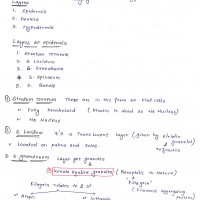 Layers
1. Epidermis
2. Dermis
3. Hypodermis
Layers of epidermis
1. Stratum corneum
2. S. Lucidum
3. S. Granulosum
4. S. Spinosum
5. S. Basale
① Stratum corneum These are in the form of dead cells
→ Fully keratinised (keratin is dead so no Nucleus)
→ No Nucleus
② S. Lucidum It's a translucent layer (given by eleidin granules)
→ Located on palms and soles.
→ refractile
③ S. granulosum Layer got granules
① Keratohyaline granules (Basophilic in Nature)
"Filagrin"
(Filament aggregating protein)
Filagrin relates to 2 D
→ Atopic
→ Icthyosis